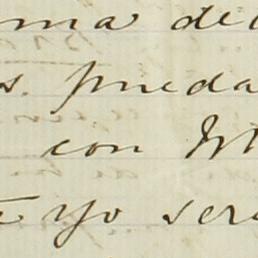 ma de
s. pueda
con
yo ser